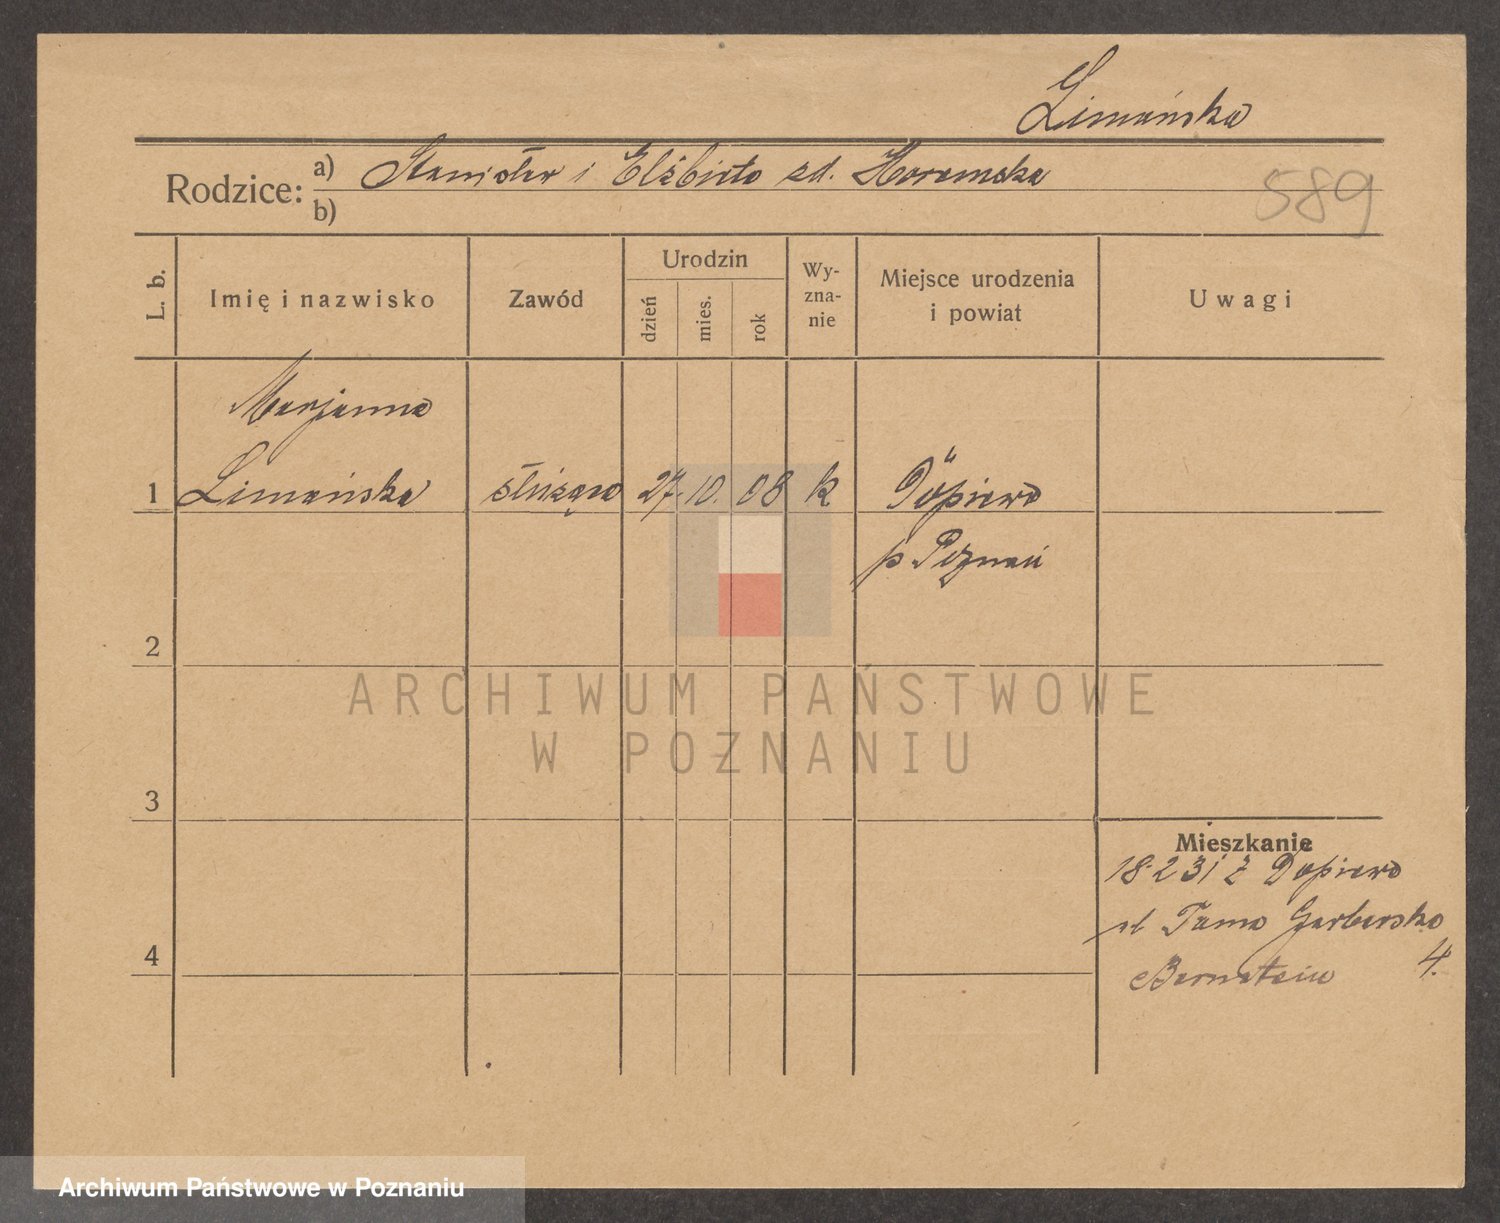 Limańska
Rodzice: a) Stanisław i Elżbieta zd. Horemska
b)
589
L. b.
Imię i nazwisko
Zawód
Urodzin
dzień
mies.
rok
Wy-
zna-
nie
Miejsce urodzenia
i powiat
Uwagi
Marjanna
1 Limańska służąca 27. 10. 08 k Dopiewo
p Poznań
2
3
4
Mieszkanie
18·2 31 z Dopiewo
ul Tama Garbarska
4.
Bernstein
ARCHIWUM PAŃSTWOWE
W POZNANIU
Archiwum Państwowe w Poznaniu